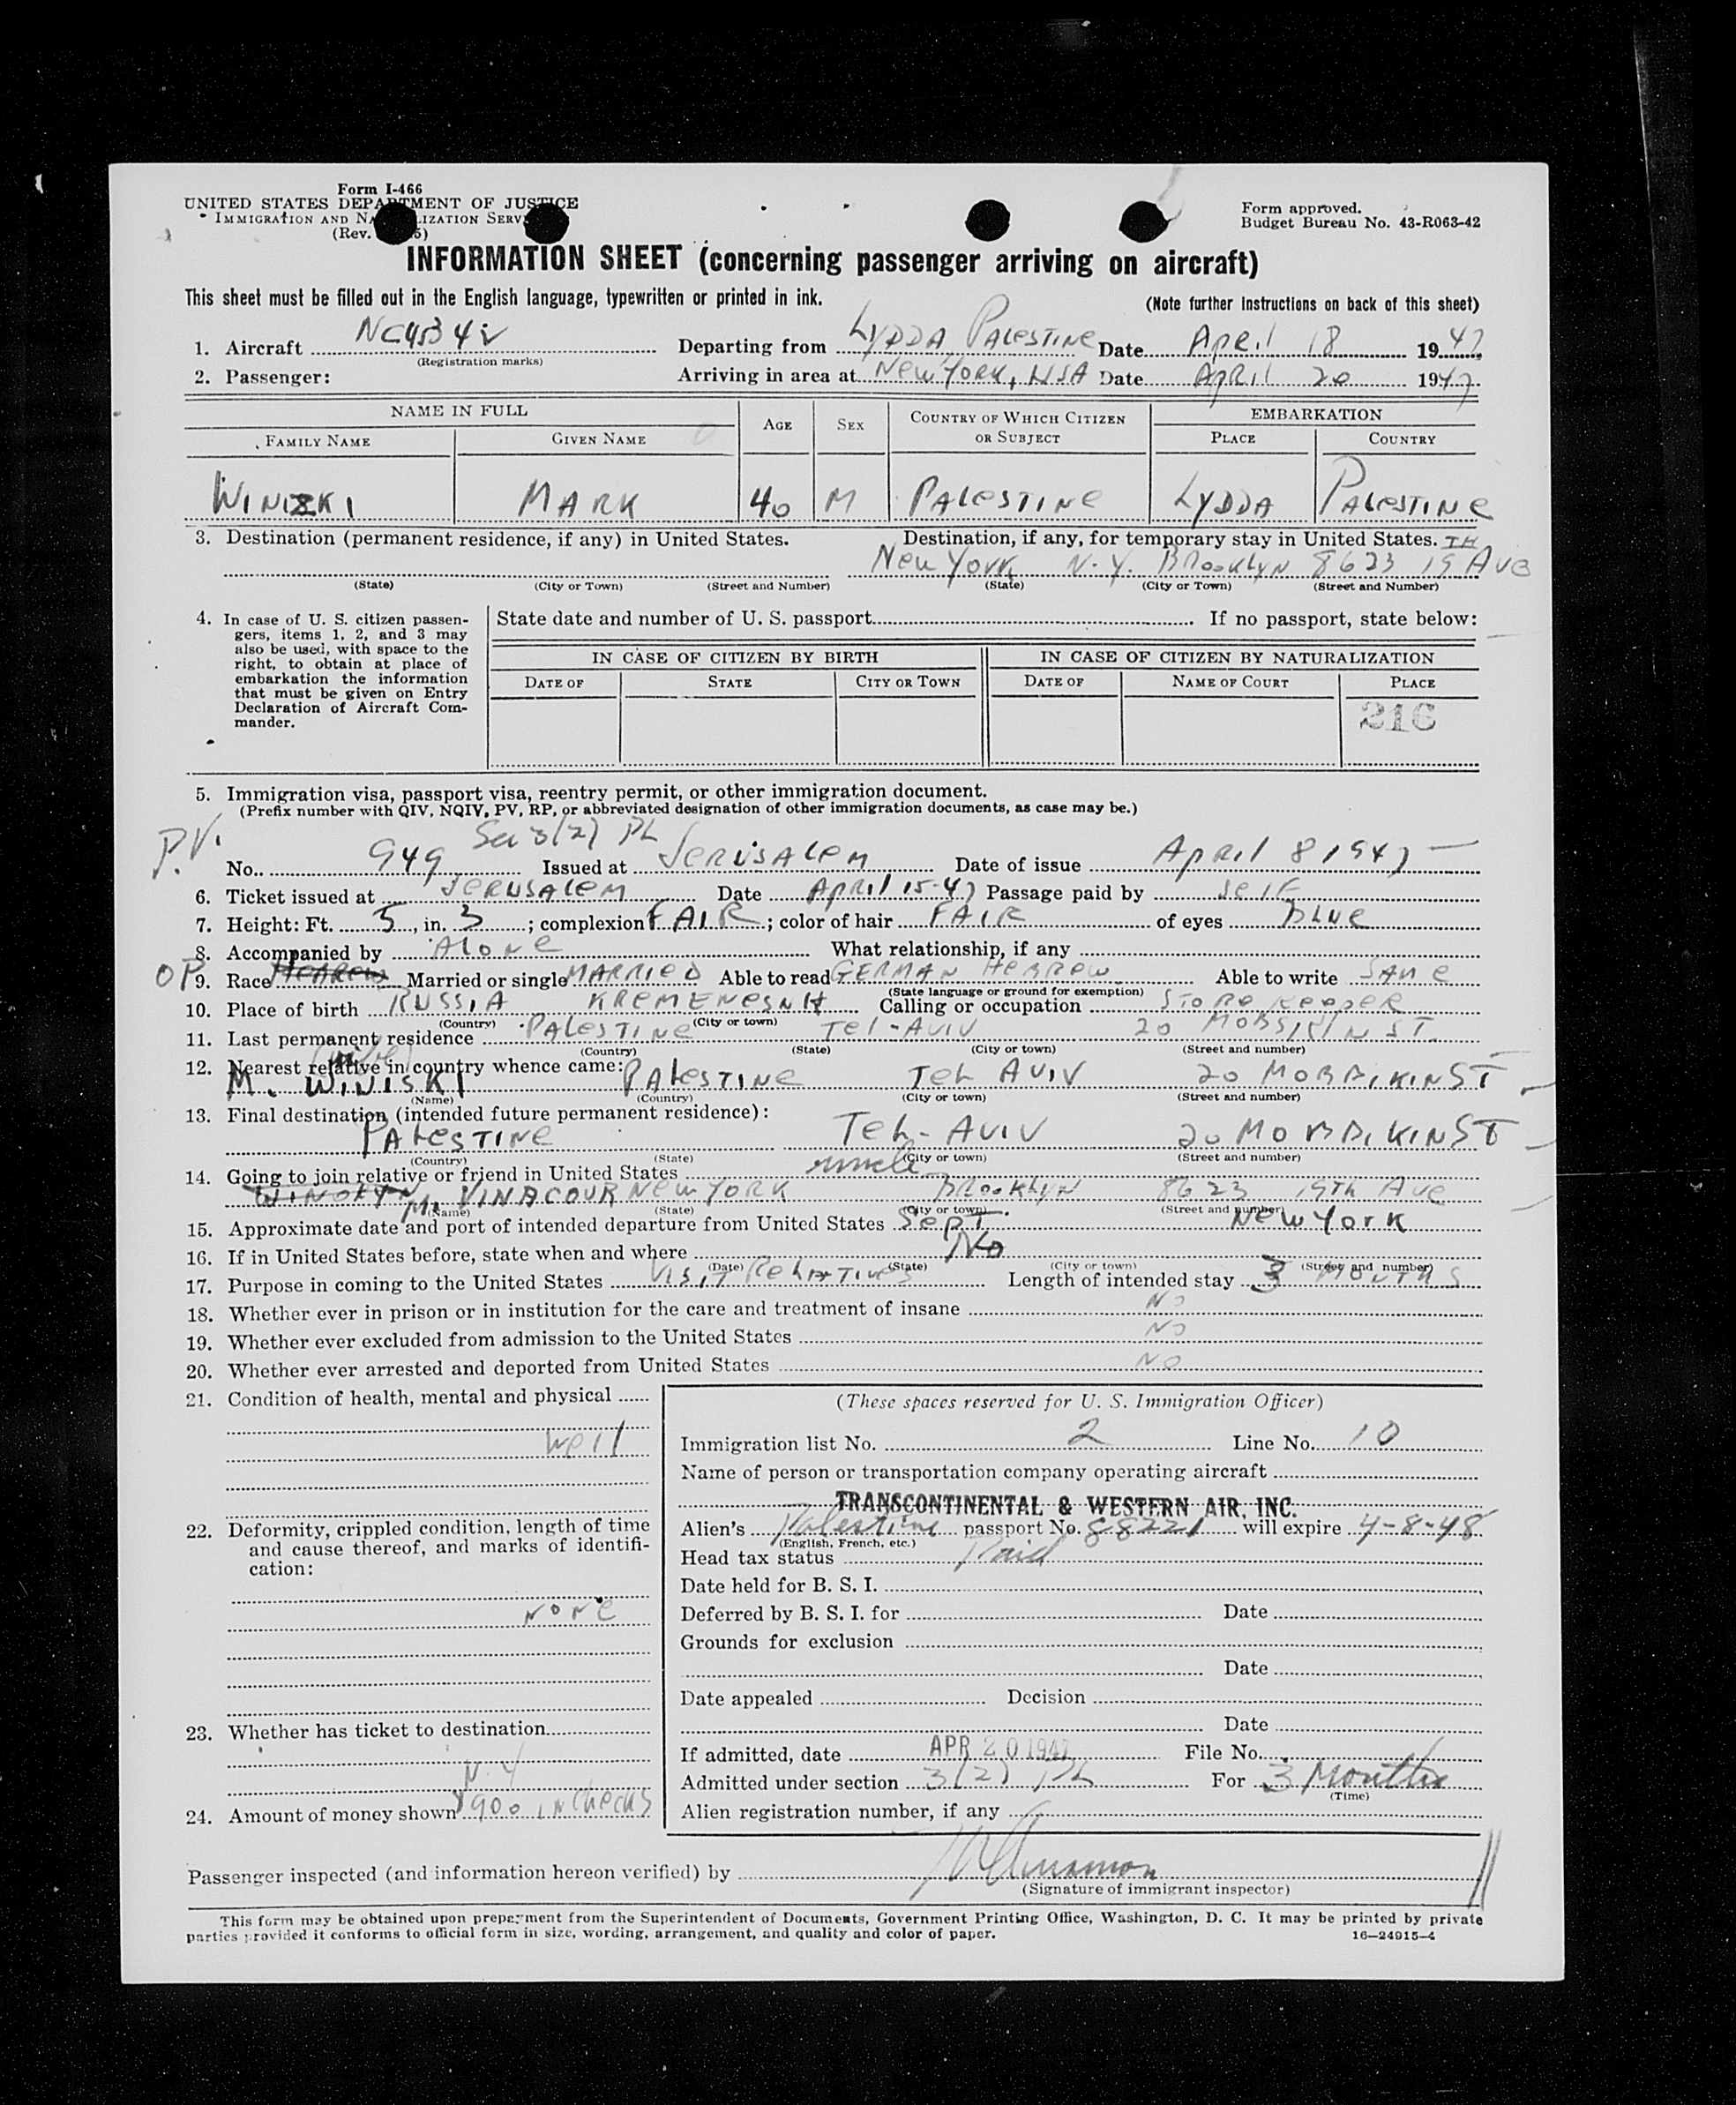 Form I-466
UNITED STATES DEPARTMENT OF JUSTICE
IMMIGRATION AND NATURALIZATION SERVICE
(Rev.
Form approved.
Budget Bureau No. 43-R063-42
INFORMATION SHEET (concerning passenger arriving on aircraft)
This sheet must be filled out in the English language, typewritten or printed in ink. (Note further instructions on back of this sheet)
1. Aircraft Departing from LYDDA, PALESTINE Date April 18 1947
(Registration marks)
2. Passenger: Arriving in area at New York, USA Date April 20 1947
NAME IN FULL AGE SEX COUNTRY OF WHICH CITIZEN OR SUBJECT EMBARKATION
FAMILY NAME GIVEN NAME PLACE COUNTRY
WINIZKI MARK 40 M PALESTINE LYDDA PALESTINE
3. Destination (permanent residence, if any) in United States. Destination, if any, for temporary stay in United States.
New York N.Y. Brooklyn 8623 19 TH Ave
(State) (City or Town) (Street and Number) (State) (City or Town) (Street and Number)
4. In case of U. S. citizen passengers, items 1, 2, and 3 may also be used, with space to the right, to obtain at place of embarkation the information that must be given on Entry Declaration of Aircraft Commander.
State date and number of U. S. passport If no passport, state below:
IN CASE OF CITIZEN BY BIRTH IN CASE OF CITIZEN BY NATURALIZATION
DATE OF STATE CITY OR TOWN DATE OF NAME OF COURT PLACE
216
5. Immigration visa, passport visa, reentry permit, or other immigration document.
(Prefix number with QIV, NQIV, PV, RP, or abbreviated designation of other immigration documents, as case may be.)
P.V. Sec 3(2) PL
No. 949 Issued at JERUSALEM Date of issue April 8 1947
6. Ticket issued at JERUSALEM Date April 15-47 Passage paid by self
7. Height: Ft. 5, in. 3; complexion FAIR; color of hair FAIR of eyes BLUE
8. Accompanied by Alone What relationship, if any
9. Race Hebrew Married or single MARRIED Able to read GERMAN HEBREW Able to write SAME
(State language or ground for exemption)
10. Place of birth RUSSIA Calling or occupation STORE KEEPER
(Country) (City or town)
11. Last permanent residence PALESTINE Tel-AVIV 20
(Country) (State) (City or town) (Street and number)
12. Nearest relative in country whence came: (wife)
M. WINISKI PALESTINE TEL AVIV 20
(Name) (Country) (City or town) (Street and number)
13. Final destination (intended future permanent residence):
PALESTINE TEL-AVIV 20
(Country) (State) (City or town) (Street and number)
14. Going to join relative or friend in United States uncle
M. VINACOUR NEW YORK BROOKLYN 8623 19TH Ave
(Name) (State) (City or town) (Street and number)
15. Approximate date and port of intended departure from United States Sept. New York
16. If in United States before, state when and where No
(Date) (State) (City or town) (Street and number)
17. Purpose in coming to the United States VISIT RELATIVES Length of intended stay 3 MONTHS
18. Whether ever in prison or in institution for the care and treatment of insane NO
19. Whether ever excluded from admission to the United States NO
20. Whether ever arrested and deported from United States NO
21. Condition of health, mental and physical
well
22. Deformity, crippled condition, length of time and cause thereof, and marks of identification:
NONE
23. Whether has ticket to destination
N.Y
24. Amount of money shown $900 IN Checks
(These spaces reserved for U. S. Immigration Officer)
Immigration list No. 2 Line No. 10
Name of person or transportation company operating aircraft
TRANSCONTINENTAL & WESTERN AIR, INC.
Alien's Palestine passport No. 88221 will expire 4-8-48
(English, French, etc.)
Head tax status Paid
Date held for B. S. I.
Deferred by B. S. I. for Date
Grounds for exclusion
Date
Date appealed Decision
Date
If admitted, date APR 20 1947 File No.
Admitted under section 3(2) PL For 3 Months
(Time)
Alien registration number, if any
Passenger inspected (and information hereon verified) by
(Signature of immigrant inspector)
This form may be obtained upon prepayment from the Superintendent of Documents, Government Printing Office, Washington, D. C. It may be printed by private
parties provided it conforms to official form in size, wording, arrangement, and quality and color of paper. 16—24915-4